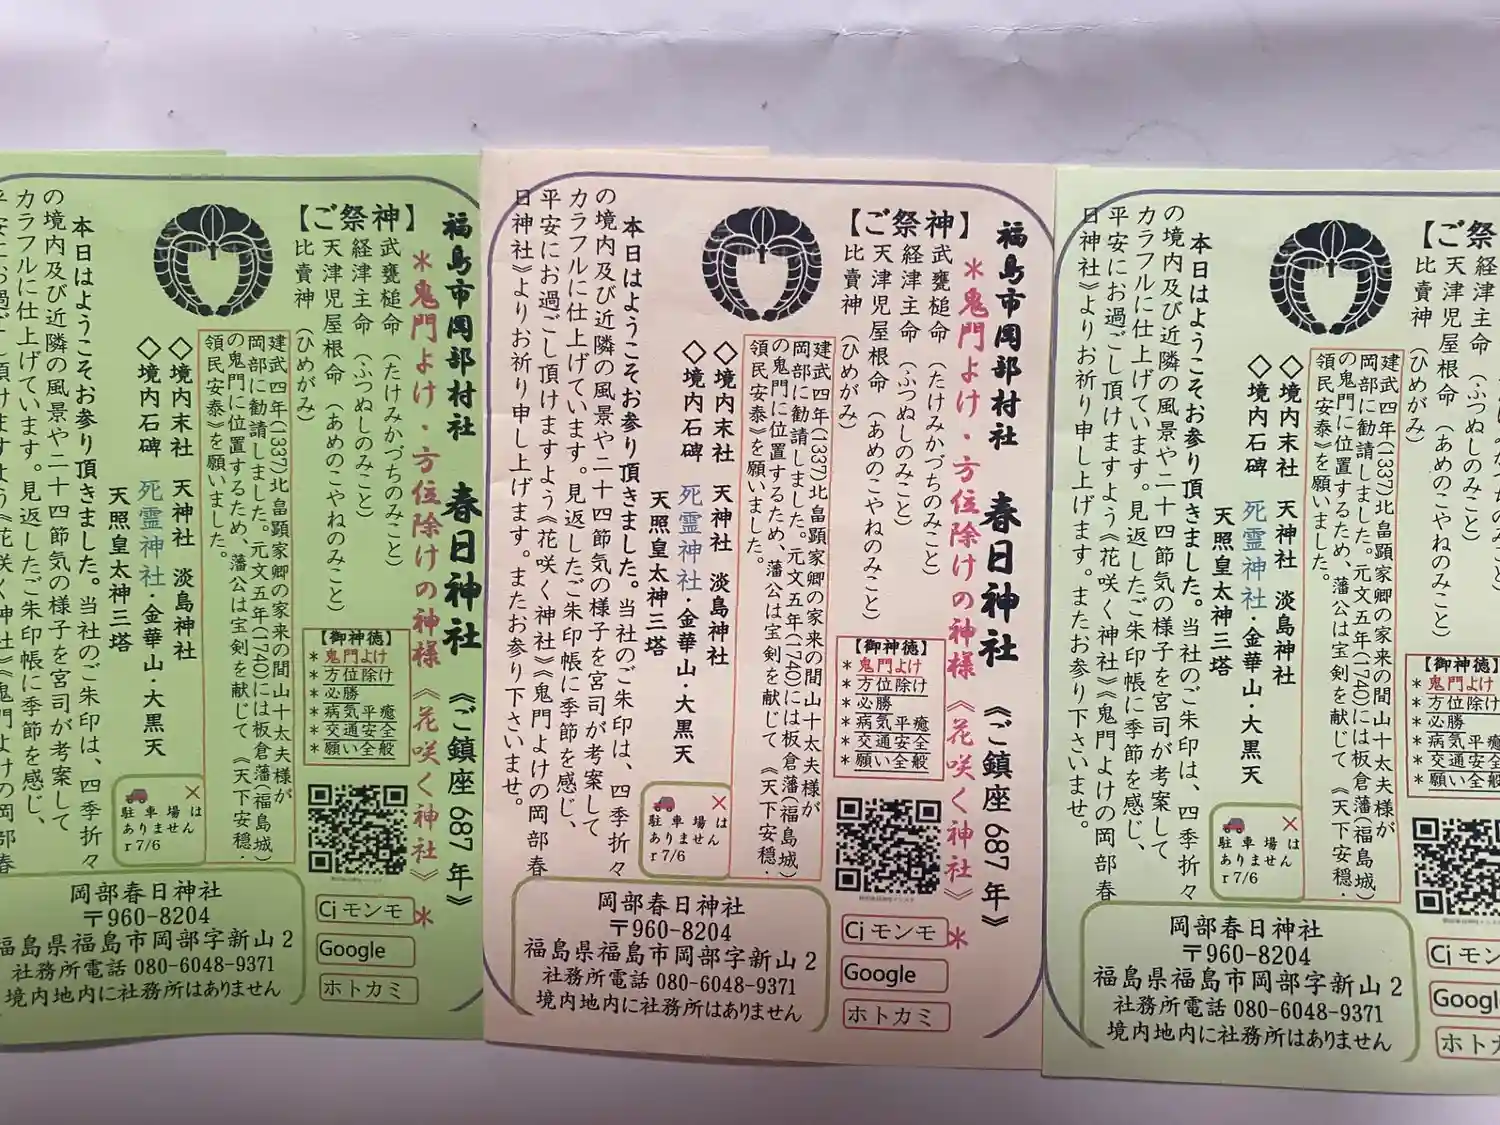 福島市岡部村社 春日神社 《ご鎮座687年》
＊鬼門よけ・方位除けの神様《花咲く神社》＊
【ご祭神】
武甕槌命 (たけみかづちのみこと)
経津主命 (ふつぬしのみこと)
天津児屋根命 (あめのこやねのみこと)
比賣神 (ひめがみ)
【御神徳】
＊鬼門よけ
＊方位除け
＊必勝
＊病気平癒
＊交通安全
＊願い全般
Cjモンモ
Google
ホトカミ
建武四年(1337)北畠顕家卿の家来の間山十太夫様が
岡部に勧請しました。元文五年(1740)には板倉藩(福島城)
の鬼門に位置するため、藩公は宝剣を献じて《天下安穏・
領民安泰》を願いました。
◇境内末社 天神社 淡島神社
◇境内石碑 死霊神社・金華山・大黒天
天照皇太神三塔
駐車場は
ありません
r7/6
本日はようこそお参り頂きました。当社のご朱印は、四季折々
の境内及び近隣の風景や二十四節気の様子を宮司が考案して
カラフルに仕上げています。見返したご朱印帳に季節を感じ、
平安にお過ごし頂けますよう《花咲く神社》《鬼門よけの岡部春
日神社》よりお祈り申し上げます。またお参り下さいませ。
岡部春日神社
〒960-8204
福島県福島市岡部字新山2
社務所電話 080-6048-9371
境内地内に社務所はありません
福島市岡部村社 春日神社 《ご鎮座687年》
＊鬼門よけ・方位除けの神様《花咲く神社》＊
【ご祭神】
武甕槌命 (たけみかづちのみこと)
経津主命 (ふつぬしのみこと)
天津児屋根命 (あめのこやねのみこと)
比賣神 (ひめがみ)
【御神徳】
＊鬼門よけ
＊方位除け
＊必勝
＊病気平癒
＊交通安全
＊願い全般
Cjモンモ
Google
ホトカミ
建武四年(1337)北畠顕家卿の家来の間山十太夫様が
岡部に勧請しました。元文五年(1740)には板倉藩(福島城)
の鬼門に位置するため、藩公は宝剣を献じて《天下安穏・
領民安泰》を願いました。
◇境内末社 天神社 淡島神社
◇境内石碑 死霊神社・金華山・大黒天
天照皇太神三塔
駐車場は
ありません
r7/6
本日はようこそお参り頂きました。当社のご朱印は、四季折々
の境内及び近隣の風景や二十四節気の様子を宮司が考案して
カラフルに仕上げています。見返したご朱印帳に季節を感じ、
平安にお過ごし頂けますよう《花咲く神社》《鬼門よけの岡部春
日神社》よりお祈り申し上げます。またお参り下さいませ。
岡部春日神社
〒960-8204
福島県福島市岡部字新山2
社務所電話 080-6048-9371
境内地内に社務所はありません
【ご祭
経津主命 (ふつぬしのみこと)
天津児屋根命 (あめのこやねのみこと)
比賣神 (ひめがみ)
【御神徳】
＊鬼門よけ
＊方位除け
＊必勝
＊病気平癒
＊交通安全
＊願い全般
Cjモン
Googl
ホトカ
建武四年(1337)北畠顕家卿の家来の間山十太夫様が
岡部に勧請しました。元文五年(1740)には板倉藩(福島城)
の鬼門に位置するため、藩公は宝剣を献じて《天下安穏・
領民安泰》を願いました。
◇境内末社 天神社 淡島神社
◇境内石碑 死霊神社・金華山・大黒天
天照皇太神三塔
駐車場は
ありません
r7/6
本日はようこそお参り頂きました。当社のご朱印は、四季折々
の境内及び近隣の風景や二十四節気の様子を宮司が考案して
カラフルに仕上げています。見返したご朱印帳に季節を感じ、
平安にお過ごし頂けますよう《花咲く神社》《鬼門よけの岡部春
日神社》よりお祈り申し上げます。またお参り下さいませ。
岡部春日神社
〒960-8204
福島県福島市岡部字新山2
社務所電話 080-6048-9371
境内地内に社務所はありません